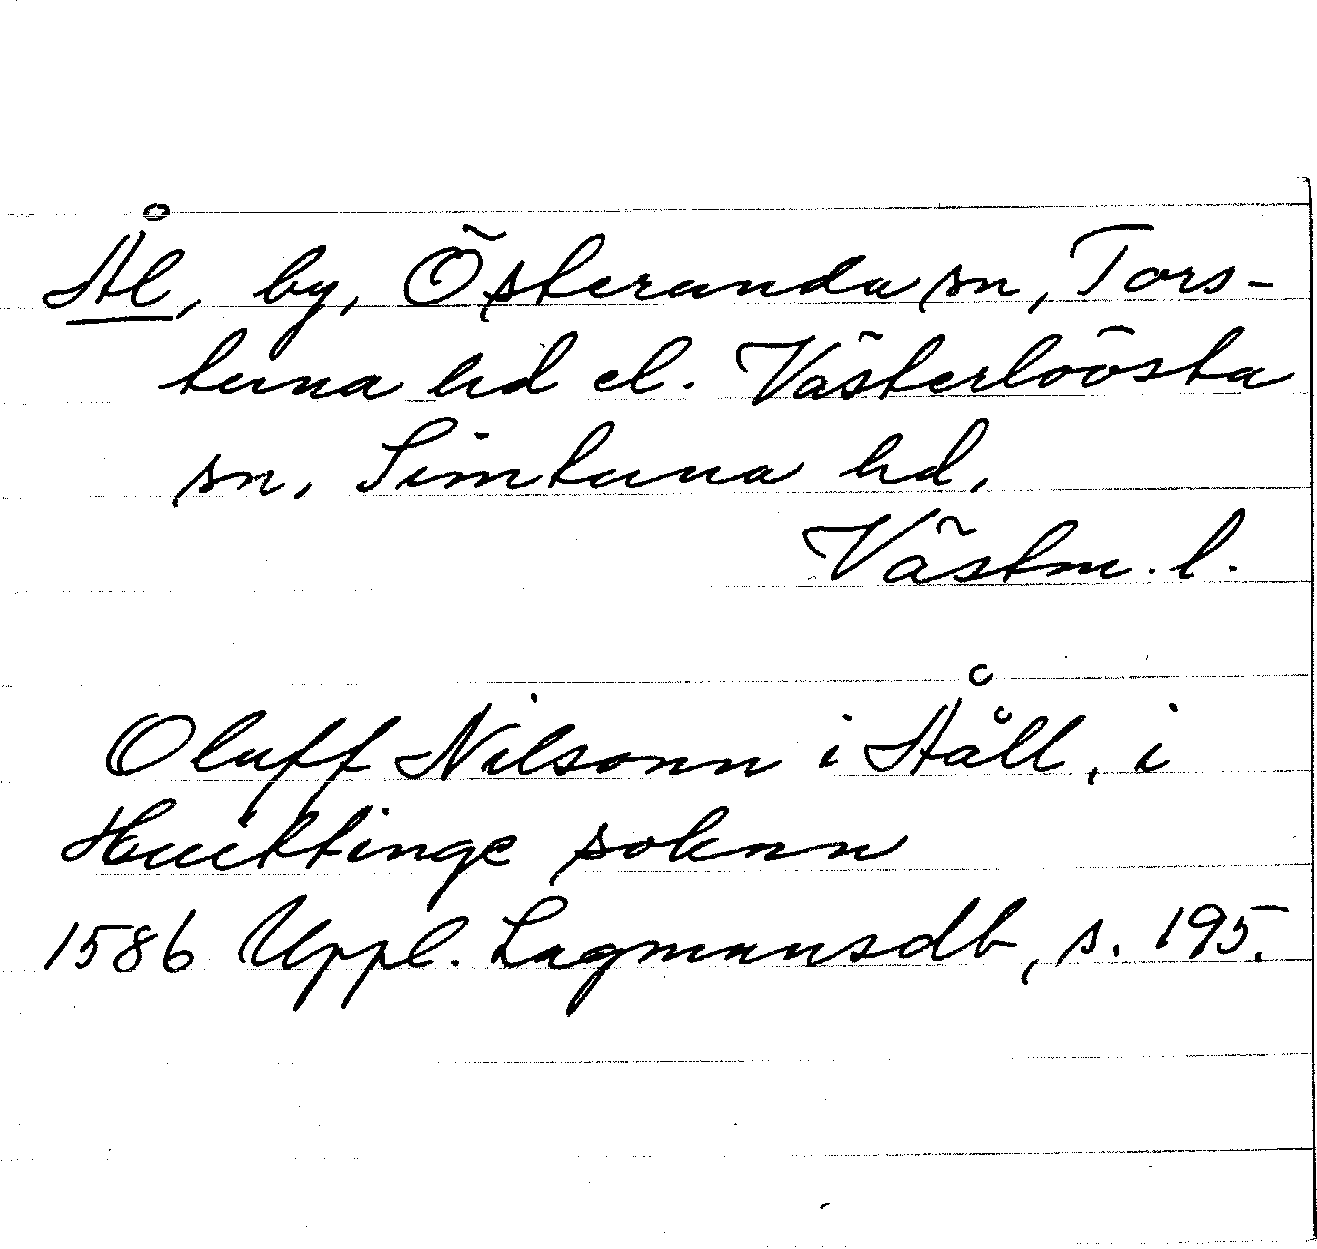 Ål, by, Österunda sn, Tors-
tuna hd el. Västerlövsta
sn, Simtuna hd,
Västm. l.
Oluff Nilsonn i Ååll, i
Huittinge soknn
1586 Uppl. Lagmansdb, s. 195.